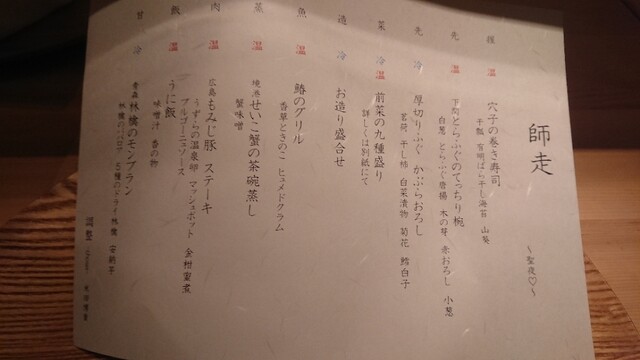 師走
〜聖夜♡〜
温 穴子の巻き寿司
干瓢 有明ばら干し海苔 山葵
先 温 下関とらふぐのてっちり椀
白葱 とらふぐ唐揚 木の芽 赤おろし 小葱
先 冷 厚切りふぐ かぶらおろし
茗荷 干し柿 白菜漬物 菊花 鱈白子
菜 冷温 前菜の九種盛り
詳しくは別紙にて
造 冷 お造り盛合せ
魚 温 鰆のグリル
香草ときのこ ヒュメドクラム
蒸 温 焼津せいこ蟹の茶碗蒸し
蟹味噌
肉 温 広島もみじ豚 ステーキ
うずらの温泉卵 マッシュポット 金柑蜜煮
ブルゴーニュソース
飯 温 うに飯
味噌汁 香の物
甘 冷 青森林檎のモンブラン
林檎のパロア 五種のドライ林檎 安納芋
調整